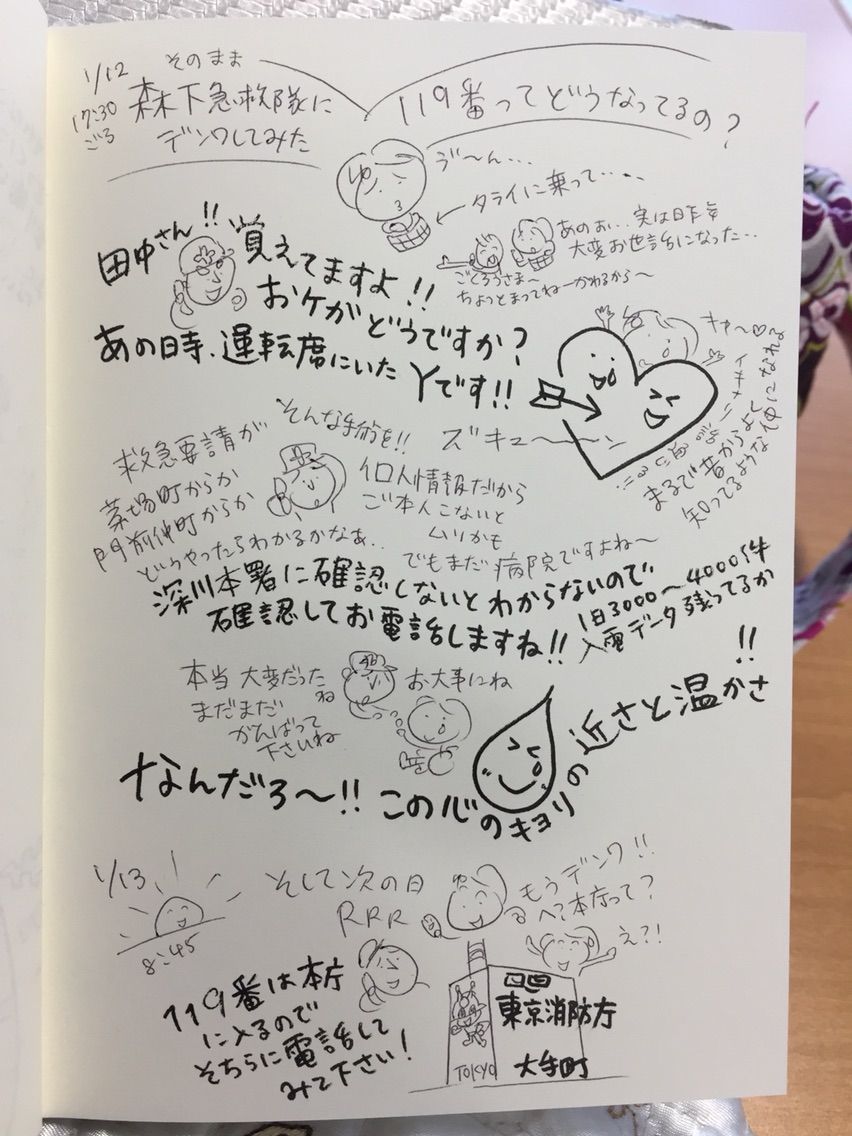 1/12
17:30
ごろ
そのまま
森下急救隊に
デンワしてみた
119番ってどうなってるの？
ゔ〜ん…
タライに乗って・・・・
あのぉ…実は昨年
大変お世話になった…
ごくろうさま〜
ちょっとまってねーかわるから〜
田中さん!!
覚えてますよ!!
おケガどうですか？
あの時、運転席にいた
Yです!!
キャ〜♡
ズキュ〜〜ン
イケメン
まるで昔からよく
知ってるような仲になれる
救急要請が
茅場町からか
門前仲町からか
どうやったらわかるかなぁ..
そんな手術を!!
個人情報だから
ご本人こないと
ムリかも
でもまだ病院ですよね〜
深川本署に確認しないとわからないので
確認してお電話しますね!!
1日3000〜4000件
入電データ残ってるか
!!
本当大変だったね
まだまだ
がんばって
下さいね
お大事にね
なんだろ〜!!この心のキョリの近さと温かさ
1/13
8:45
そして次の日
RRR
もうデンワ!!
へ？本庁って？
え？！
119番は本庁
に入るので
そちらに電話して
みて下さい！
東京消防庁
大手町
TOKYO